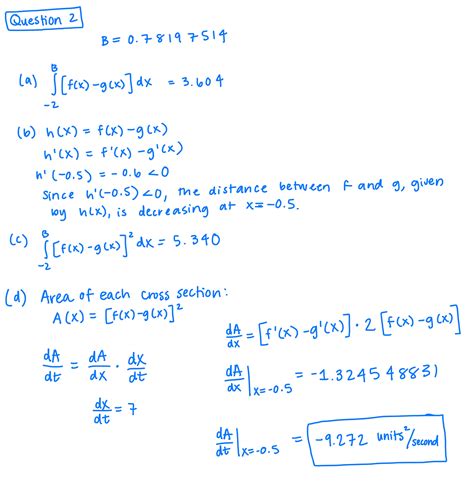 Question 2
B = 0.78197514
(a) ∫_{-2}^{B} [f(x)-g(x)] dx = 3.604
(b) h(x) = f(x) - g(x)
h'(x) = f'(x) - g'(x)
h'(-0.5) = -0.6 < 0
Since h'(-0.5) < 0, the distance between f and g, given
by h(x), is decreasing at x = -0.5.
(c) ∫_{-2}^{B} [f(x)-g(x)]² dx = 5.340
(d) Area of each cross section:
A(x) = [f(x)-g(x)]²
dA/dt = dA/dx · dx/dt
dx/dt = 7
dA/dx = [f'(x)-g'(x)] · 2 [f(x)-g(x)]
dA/dx |x=-0.5 = -1.324548831
dA/dt |x=-0.5 = -9.272 units²/second